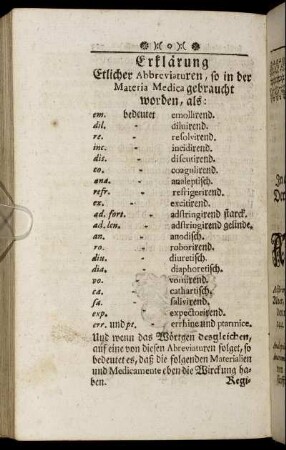 Erklärung
Etlicher Abbreviaturen, so in der
Materia Medica gebraucht
worden, als:
em. bedeutet emollirend.
dil. - diluirend.
re. - resolvirend.
inc. - incidirend.
dis. - discutirend.
co. - coagulirend.
ana. - analeptisch.
refr. - refrigerirend.
ex. - excitirend.
ad. fort. - adstringirend starck.
ad. len. - adstringirend gelinde.
an. - anodisch.
ro. - roborirend.
diu. - diuretisch.
dia. - diaphoretisch.
vo. - vomirend.
ca. - cathartisch.
sa. - salivirend.
exp. - expectorirend.
err. und pt. - errhine und ptarmice.
Und wenn das Wörtgen desgleichen,
auf eine von diesen Abreviaturen folget, so
bedeutet es, daß die folgenden Materialien
und Medicamente eben die Wirckung ha-
ben. Regi-